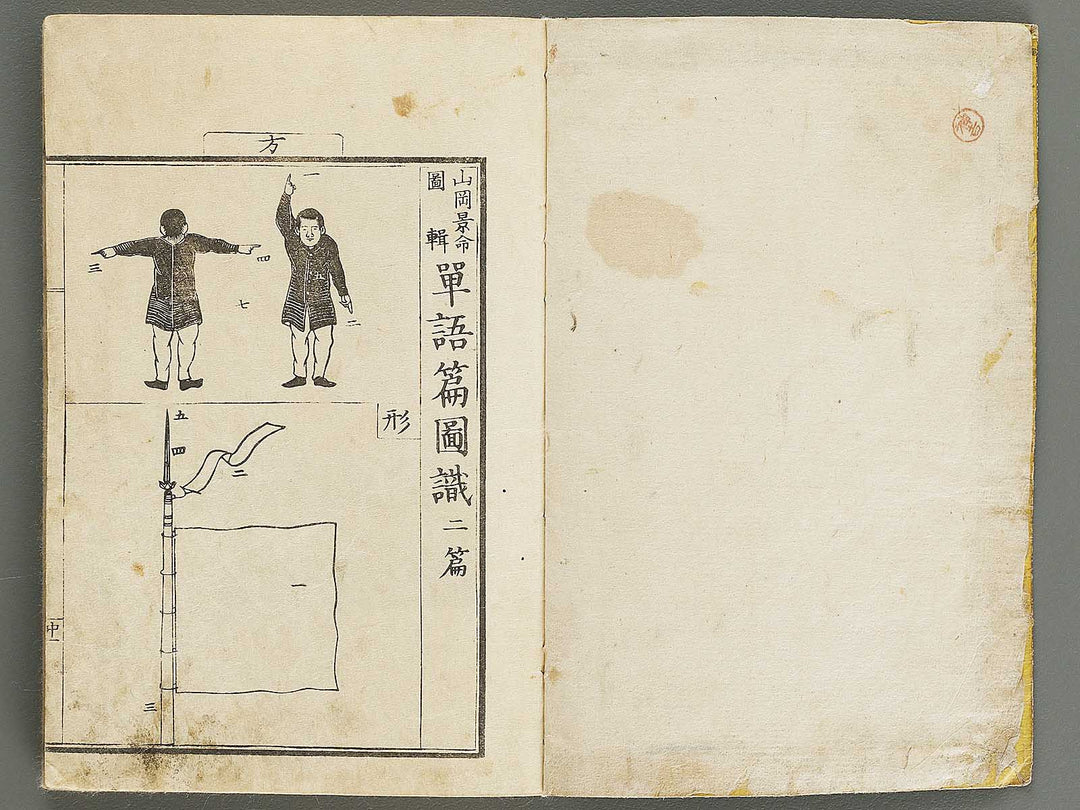 方
山岡景命
圖輯
單語篇圖識 二篇
一
二
三
四
五
七
形
五
四
二
一
三
中一